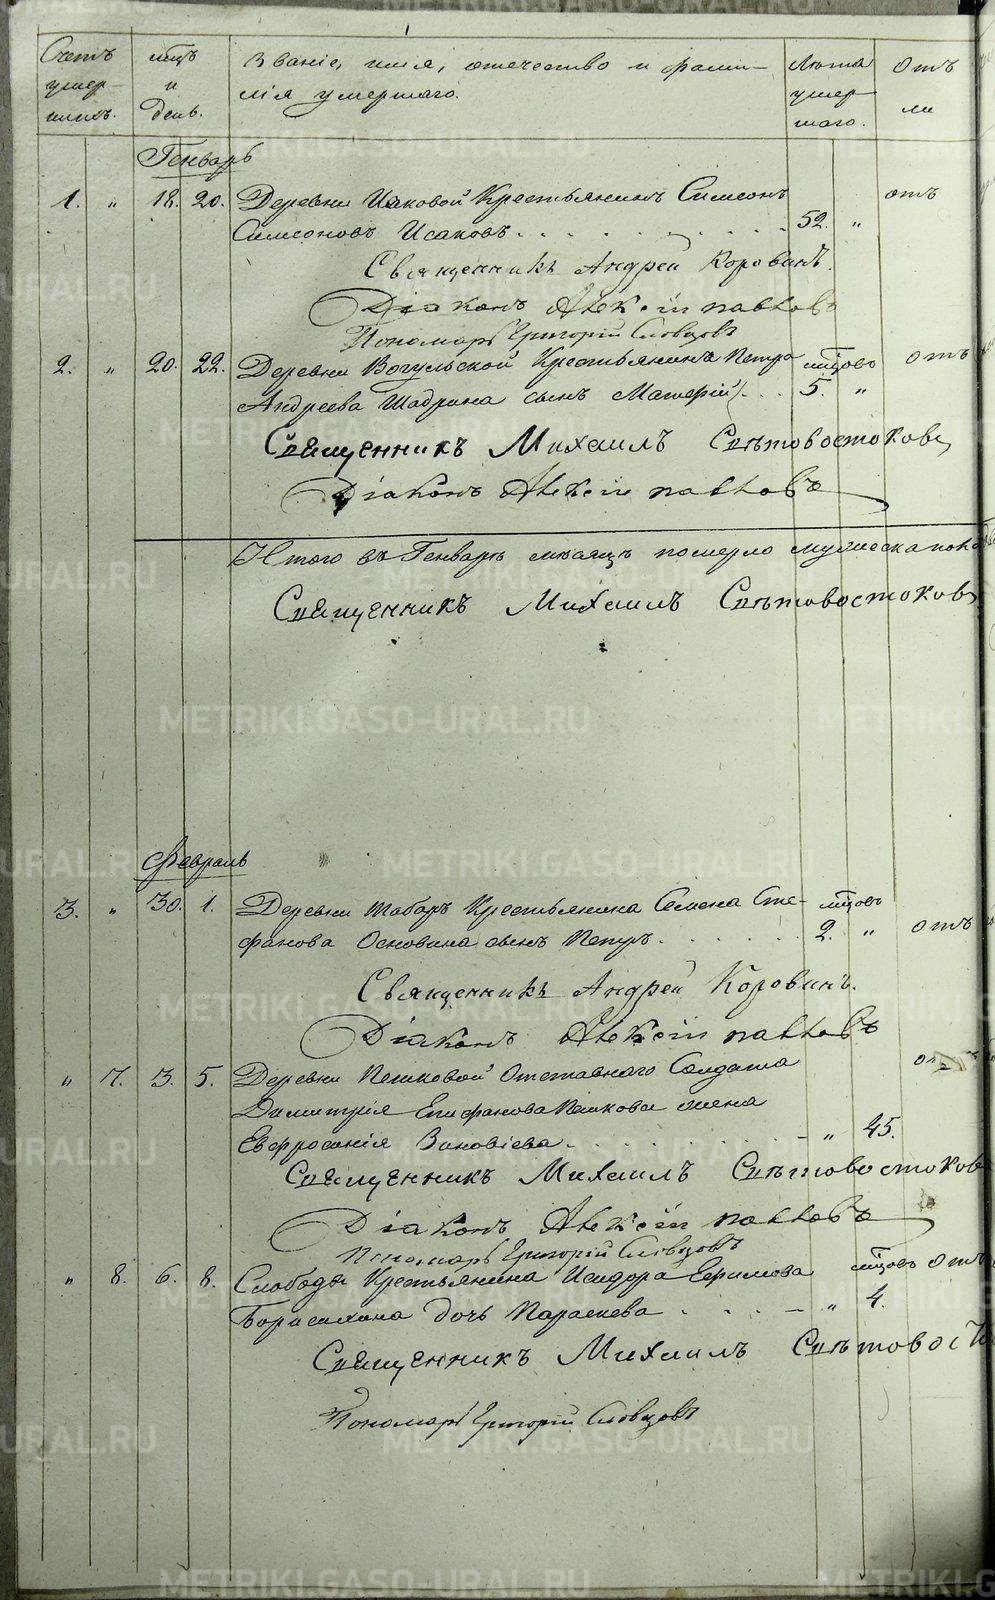 Счетъ умер- шихъ.
мцъ и день.
Званіе, имя, отечество и фами-
лія умершаго.
Лѣта умер шаго.
отъ
Генварь
1. " 18. 20. Деревни Исаковой Крестьянинъ Симеонъ отъ
Симеоновъ Исаковъ. 52. "
Священникъ Андрей Коровинъ.
Діаконъ Алексѣй Павловъ
Пономарь Григорій Словцовъ
2. " 20. 22. Деревни Вогульской Крестьянина Петра мцовъ отъ
Андреева Шадрина сынъ 5. "
Священникъ Михаилъ Свѣтовостоковъ
Діаконъ Алексѣй Павловъ
Итого въ Генварѣ мѣсяцѣ померло мужеска пола
Священникъ Михаилъ Свѣтовостоковъ
METRIKI.GASO-URAL.RU
Февраль
3. " 30. 1. Деревни Шабаръ Крестьянина Семена Сте- мцовъ
фанова Основина сынъ Петръ. 2. " отъ
Священникъ Андрей Коровинъ.
Діаконъ Алексѣй Павловъ
" 7. 3. 5. Деревни Пешковой Отставнаго Солдата
Димитрія Епифанова Пешкова жена
Евфросинія Зиновіева. " 45.
Священникъ Михаилъ Свѣтовостоковъ
Діаконъ Алексѣй Павловъ
Пономарь Григорій Словцовъ
" 8. 6. 8. Слободы Крестьянина Исидора Ефимова мцовъ отъ
дочь Параскева " 4.
Священникъ Михаилъ Свѣтовосто
Пономарь Григорій Словцовъ